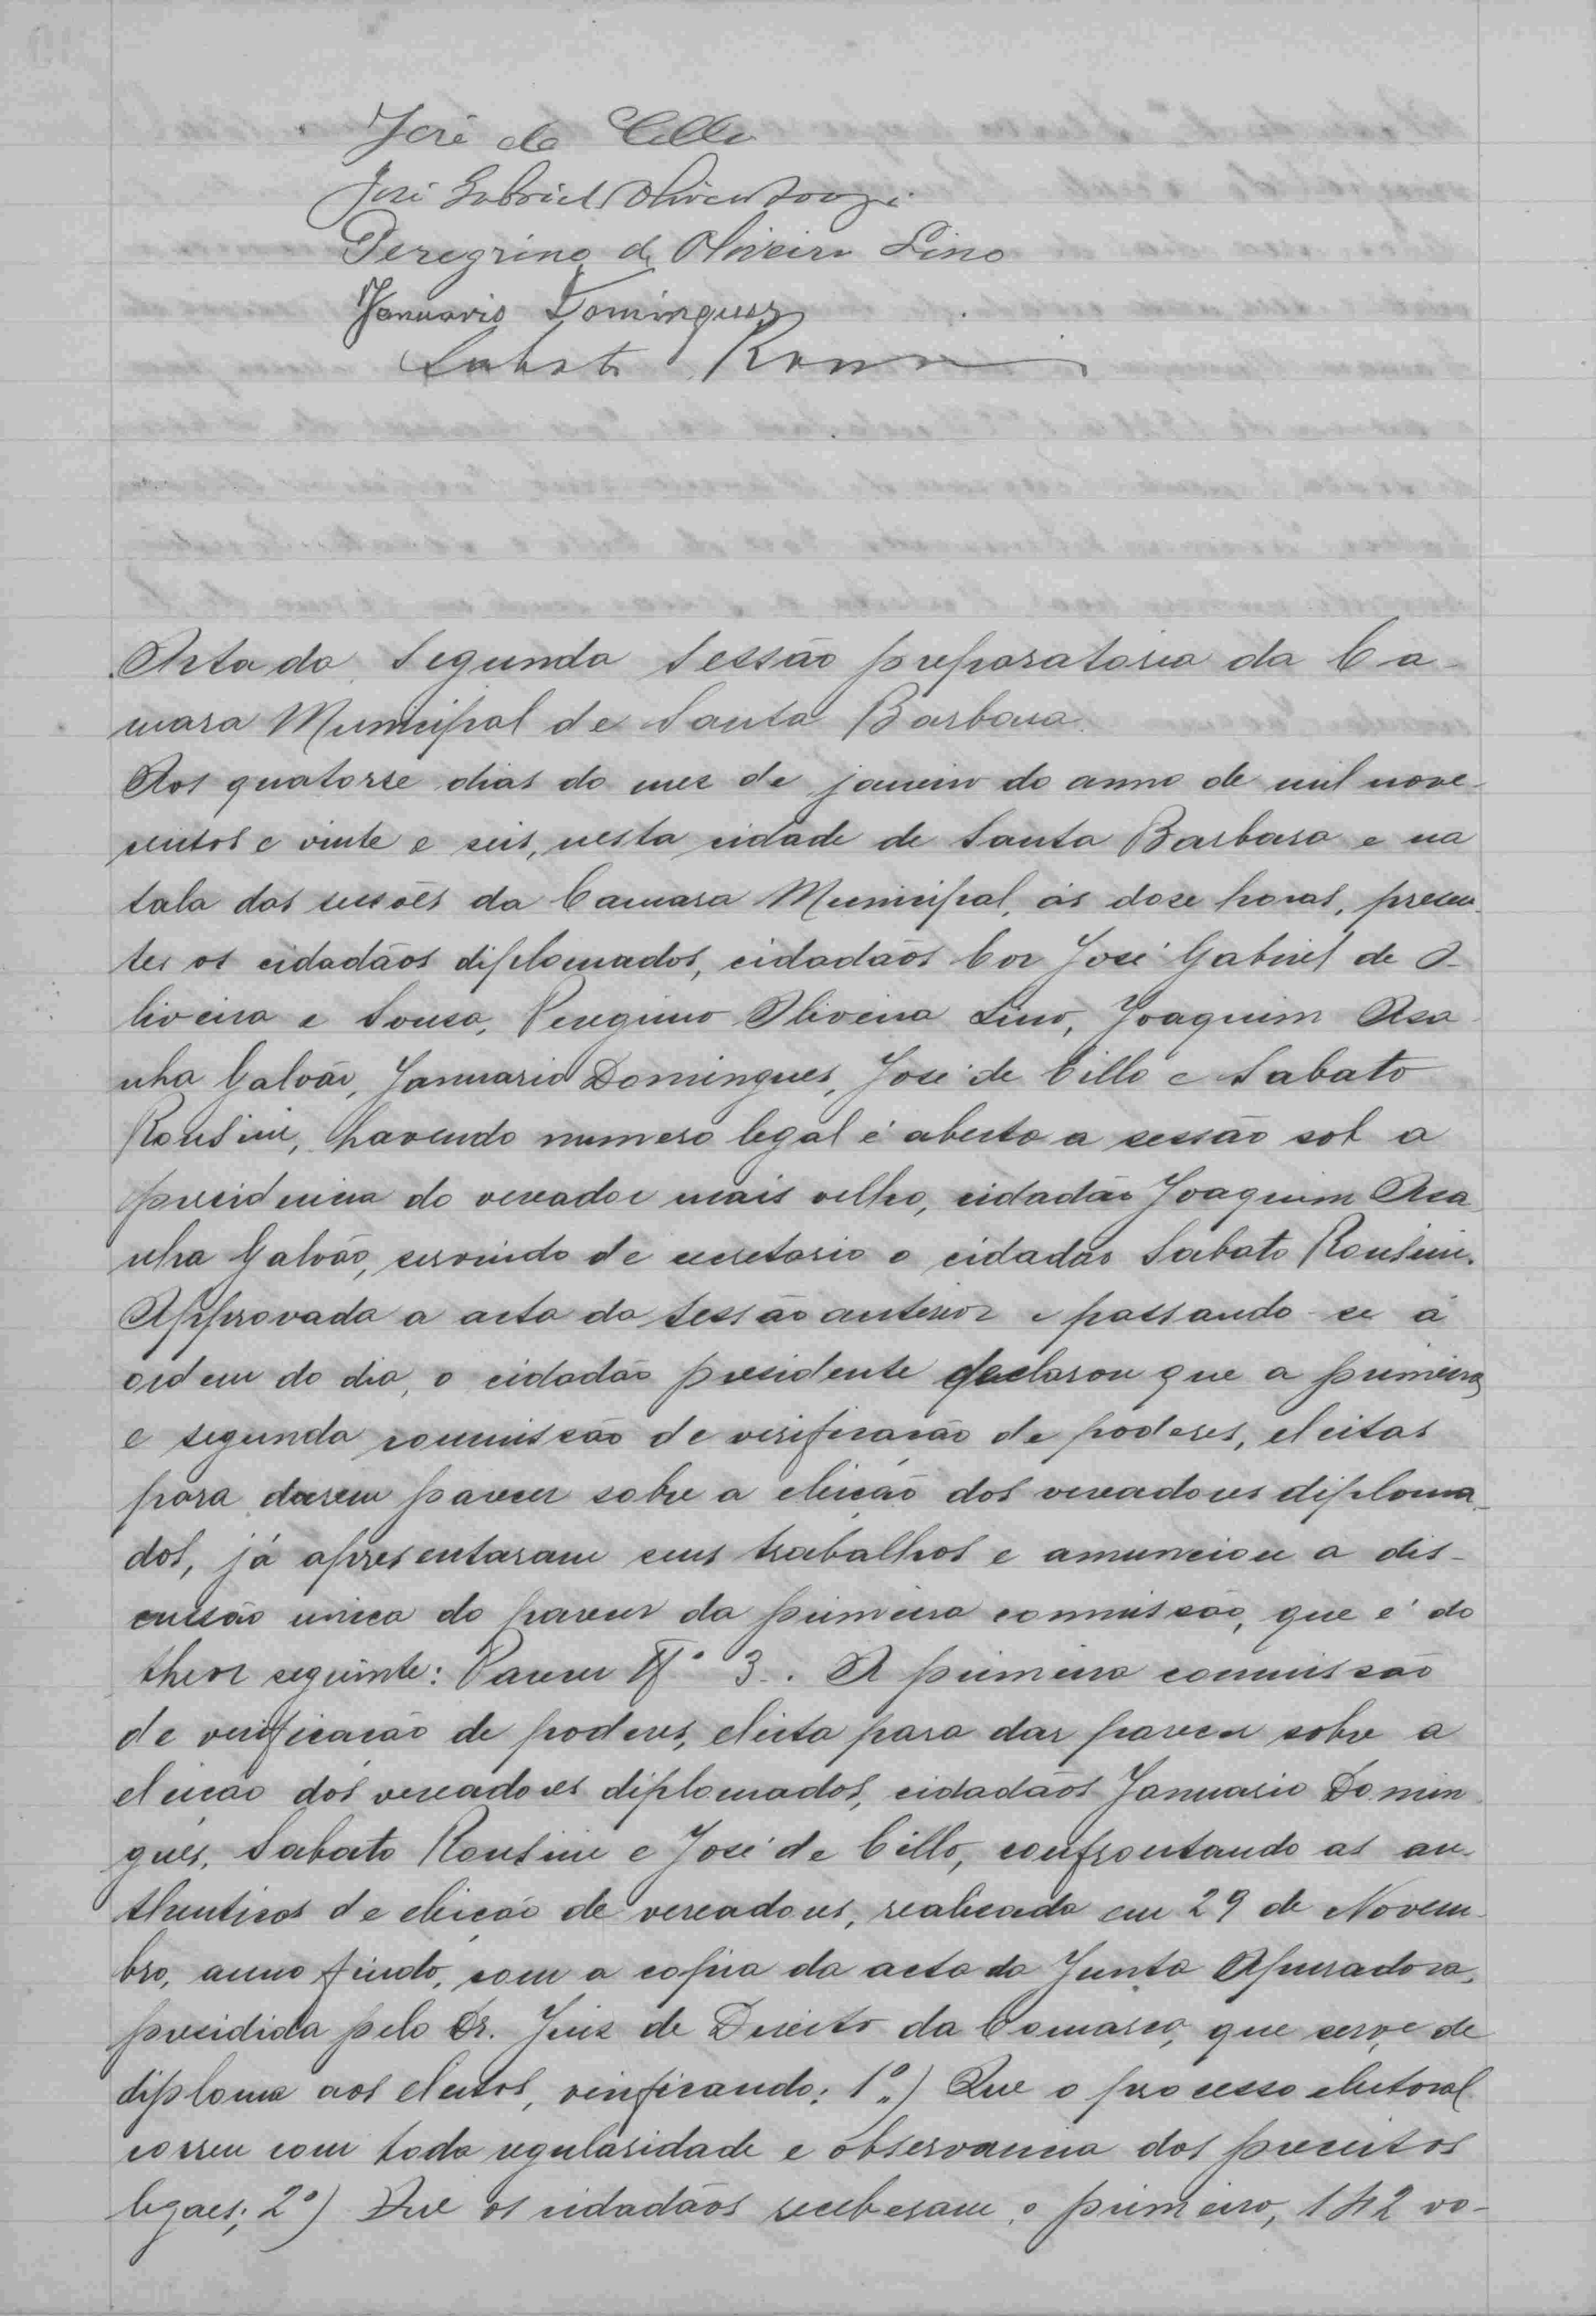 José de Cillo
José Gabriel Oliveira Souza
Peregrino de Oliveira Lino
Januario Domingues
Sabato Ronsini
Acta da Segunda Sessão preparatoria da Ca-
mara Municipal de Santa Barbara.
Aos quatorse dias do mez de janeiro do anno de mil nove-
centos e vinte e seis, nesta cidade de Santa Barbara e na
sala das sessões da Camara Municipal, ás doze horas, presen-
tes os cidadãos diplomados, cidadãos Cor José Gabriel de O-
liveira e Souza, Peregrino Oliveira Lino, Joaquim Aza
nha Galvão, Januario Domingues, José de Cillo e Sabato
Ronsini, havendo numero legal é aberta a sessão sob a
presidencia do vereador mais velho, cidadão Joaquim Aza
nha Galvão, servindo de secretario o cidadão Sabato Ronsini.
Approvada a acta da sessão anterior e passando-se á
ordem do dia, o cidadão presidente declarou que a primeira
e segunda commissão de verificação de poderes, eleitas
para darem parecer sobre a eleição dos vereadores diploma-
dos, já apresentaram seus trabalhos e annunciou a dis-
cussão unica do parecer da primeira commissão, que é do
theor seguinte: Parecer Nº 3. A primeira commissão
de verificação de poderes, eleita para dar parecer sobre a
eleição dos vereadores diplomados, cidadãos Januario Domin
gues, Sabato Ronsini e José de Cillo, confrontando as au-
thenticas de eleição de vereadores, realizada em 29 de Novem-
bro, anno findo, com a copia da acta da Junta Apuradora,
presidida pelo Dr. Juiz de Direito da Comarca, que serve de
diploma aos eleitos, verificando: 1º.) Que o processo eleitoral
correu com toda regularidade e observancia dos preceitos
legaes; 2º) Que os cidadãos receberam, o primeiro, 142 vo-